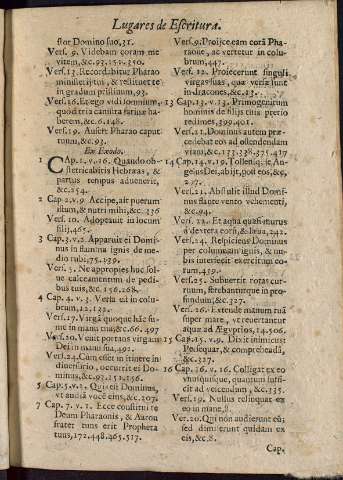 Lugares de Escritura.
stor Domino suo, 31.
Vers. 9. Videbam coram me
vitem, &c. 93. 152. 350.
Vers. 13. Recordabitur Pharao
ministerij tui, & restituet te
in gradum pristinum, 93.
Vers. 16. Et ego vidi somnium,
quòd tria canistra farinæ ha-
berem, &c. 6. 148.
Vers. 19. Aufert Pharao caput
tuum, &c. 93.
Ex Exodo.
1 CAp. 1. v. 16. Quando ob-
stetricabitis Hebræas, &
partus tempus advenerit,
&c. 254.
2 Cap 2. v. 9. Accipe, ait puerum
istum, & nutri mihi, &c. 336
Vers. 10. Adoptavit in locum
filij, 465.
3 Cap. 3. v. 2. Apparuit ei Domi-
nus in flamma ignis de me-
dio rubi, 75. 139.
Vers. 5. Ne appropies huc sol-
ve calceamentum de pedi-
bus tuis, &c. 156. 268.
4 Cap. 4. v. 3. Versa est in colu-
brum, 12. 132.
Vers. 17. Virgã quoque hãc su-
me in manu tua, &c. 66. 497
Vers. 20. Venit portans virgam
Dei in manu sua, 492.
Vers. 24. Cum esset in itinere in
diversorio, occurrit ei Do-
minus, &c. 93. 152. 156.
5 Cap. 5. v. 2. Quis est Dominus,
vt audiã voce eius, &c. 207.
7 Cap. 7. v. 1. Ecce constitui te
Deum Pharaonis, & Aaron
frater tuus erit Propheta
tuus, 172. 448. 465. 517.
Vers. 9. Proijce eam corã Pha-
raone, ac vertetur in colu-
brum, 447.
Vers. 12. Proiecerunt singuli
virgas suas, quæ versæ sunt
in dracones, &c. 13.
13 Cap. 13. v. 13. Primogenitum
hominis de filijs tuis pretio
redimes, 399. 401.
Vers. 21. Dominus autem præ-
cedebat eos ad ostendendam
viam, &c. 133. 338. 371. 417
14 Cap. 14. v. 19. Tollensq; se An-
gelus Dei, abijt, post eos, &c,
227.
Vers. 21. Abstulit illud Domi-
nus flante vento vehementi,
&c. 94.
Vers. 22. Et aqua quasi murus
à dextera eorũ, & læva, 242.
Vers. 24. Respiciens Dominus
per columnam ignis, & nu-
bis interfecit exercitum eo-
rum, 459.
Vers. 25. Subvertit rotas cur-
ruum, ferebanturque in pro-
fundum, &c. 227.
Vers. 26. Extende manum tuã
super mare, vt revertantur
aquæ ad Ægyptios, 14. 506.
15 Cap. 15. v. 9. Dixit inimicus:
Persequar, & comprehendã,
&c. 327.
16 Cap. 16. v. 16. Colligat ex eo
vnusquisque, quantum suffi-
cit ad vescendum, &c. 135.
Vers. 19. Nullus relinquat ex
eo in mane, 8.
Ver. 20. Qui non audierunt eũ;
sed dimiserunt quidam ex
eis, &c. 8.
Cap.